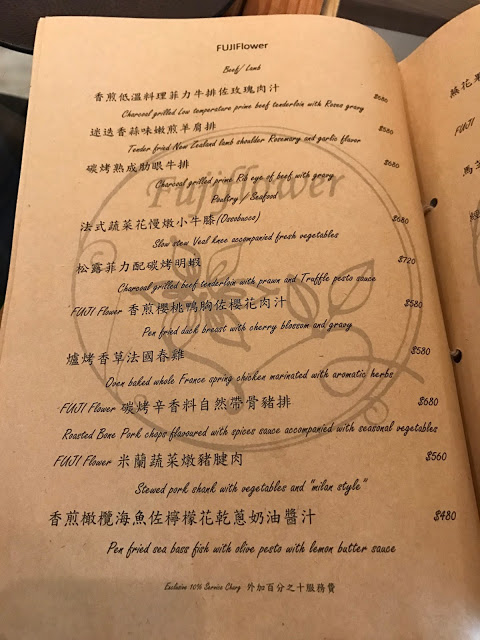 FUJIFlower
Beef/ Lamb
香煎低溫料理菲力牛排佐玫瑰肉汁 $680
Charcoal grilled Low temperature prime beef tenderloin with Roses gravy
迷迭香蒜味嫩煎羊肩排 $580
Tender fried New Zealand lamb shoulder Rosemary and garlic flavor
碳烤熟成肋眼牛排 $680
Charcoal grilled prime Rib eye of beef with gravy
Fujiflower
Poultry / Seafood
法式蔬菜花慢燉小牛膝(Ossobucco) $680
Slow stew Veal knee accompanied fresh vegetables
松露菲力配碳烤明蝦 $720
Charcoal grilled beef tenderloin with prawn and Truffle pesto sauce
FUJI Flower 香煎櫻桃鴨胸佐櫻花肉汁 $580
Pen fried duck breast with cherry blossom and gravy
爐烤香草法國春雞 $580
Oven baked whole France spring chicken marinated with aromatic herbs
FUJI Flower 碳烤辛香料自然帶骨豬排 $680
Roasted Bone Pork chops flavoured with spices sauce accompanied with seasonal vegetables
FUJI Flower 米蘭蔬菜燉豬腱肉 $560
Stewed pork shank with vegetables and "milan style"
香煎橄欖海魚佐檸檬花乾蔥奶油醬汁 $480
Pen fried sea bass fish with olive pesto with lemon butter sauce
Exclusive 10% Service Charg 外加百分之十服務費
FUJI